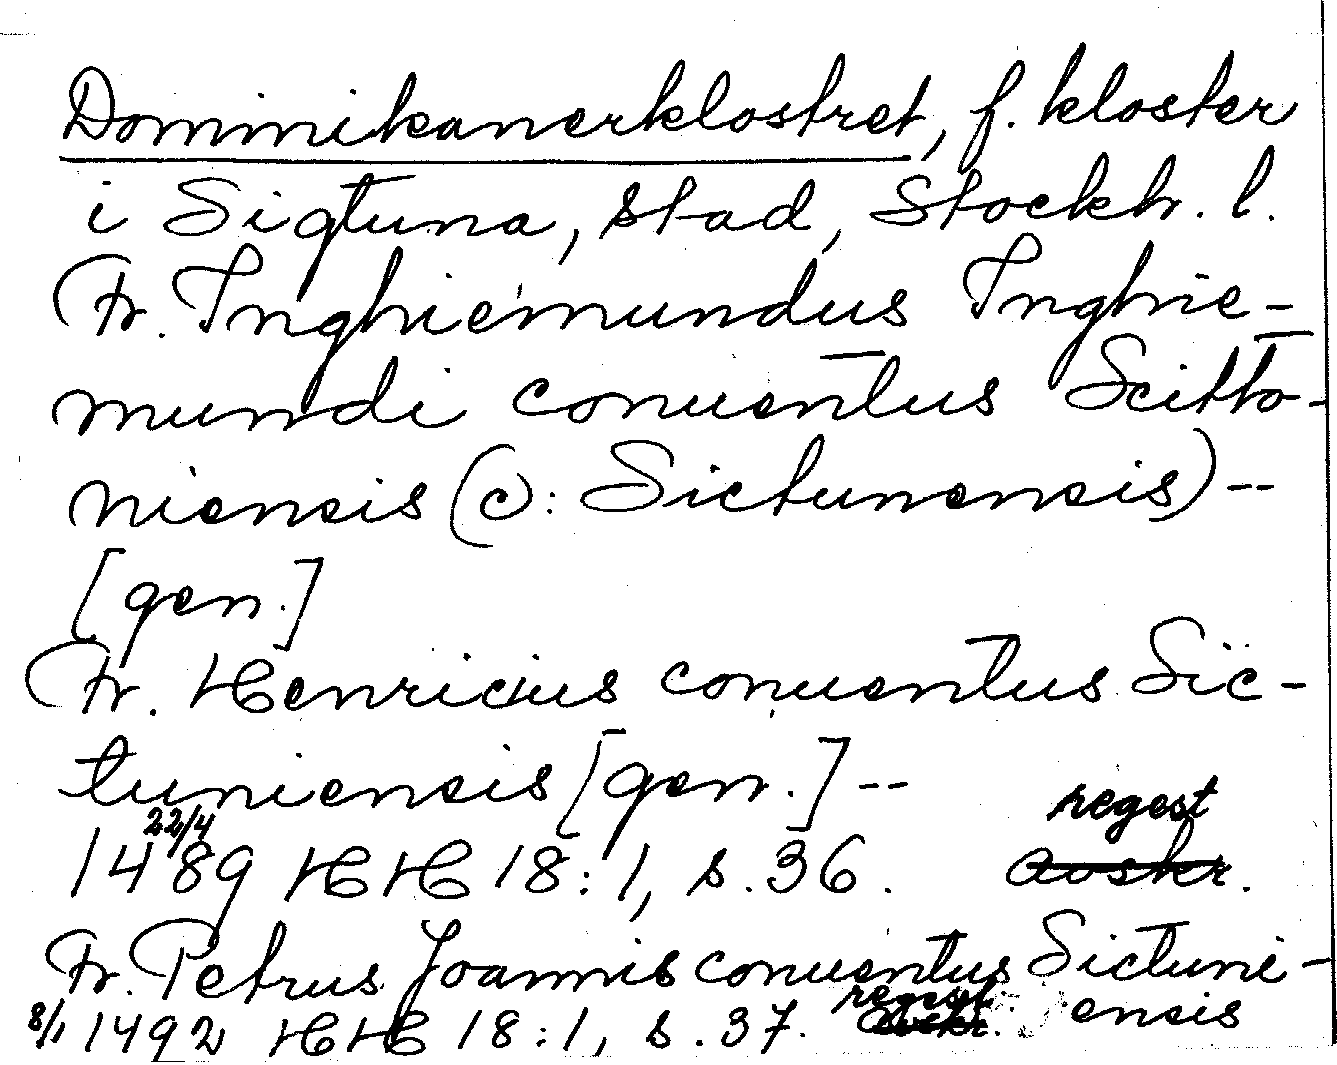 Dominikanerklostret, f. kloster
i Sigtuna, stad, Stockh. l.
Fr. Inghiemundus Inghie-
mundi conuentus Scitto-
niensis (ɔ: Sictunensis) --
[gen.]
Fr. Henricius conuentus Sic-
tuniensis [gen.] --
regest
22/4
1489 HH 18:1, s. 36. avskr.
Fr. Petrus Joannis conuentus Sictuni-
ensis
8/1 1492 HH 18:1, s. 37. regest avskr.